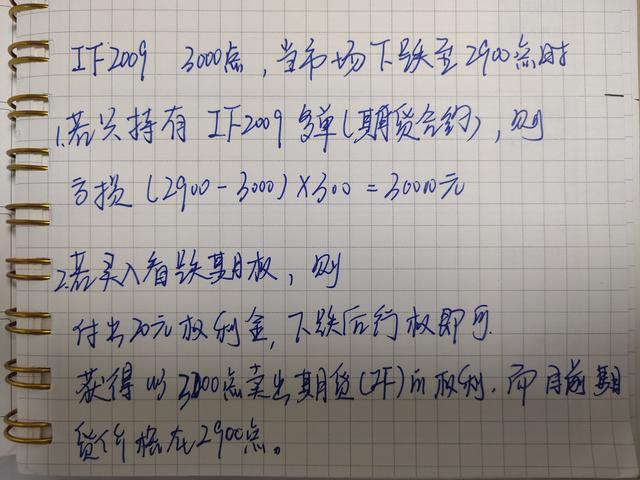 IF2009 3000点，当市场下跌至2900点时
1.若只持有 IF2009 多单(期货合约)，则
亏损 (2900-3000)×300=30000元
2.若买入看跌期权，则
付出20元权利金，下跌后行权即可.
获得以3000点卖出期货(IF)的权利.而目前期
货价格在2900点。